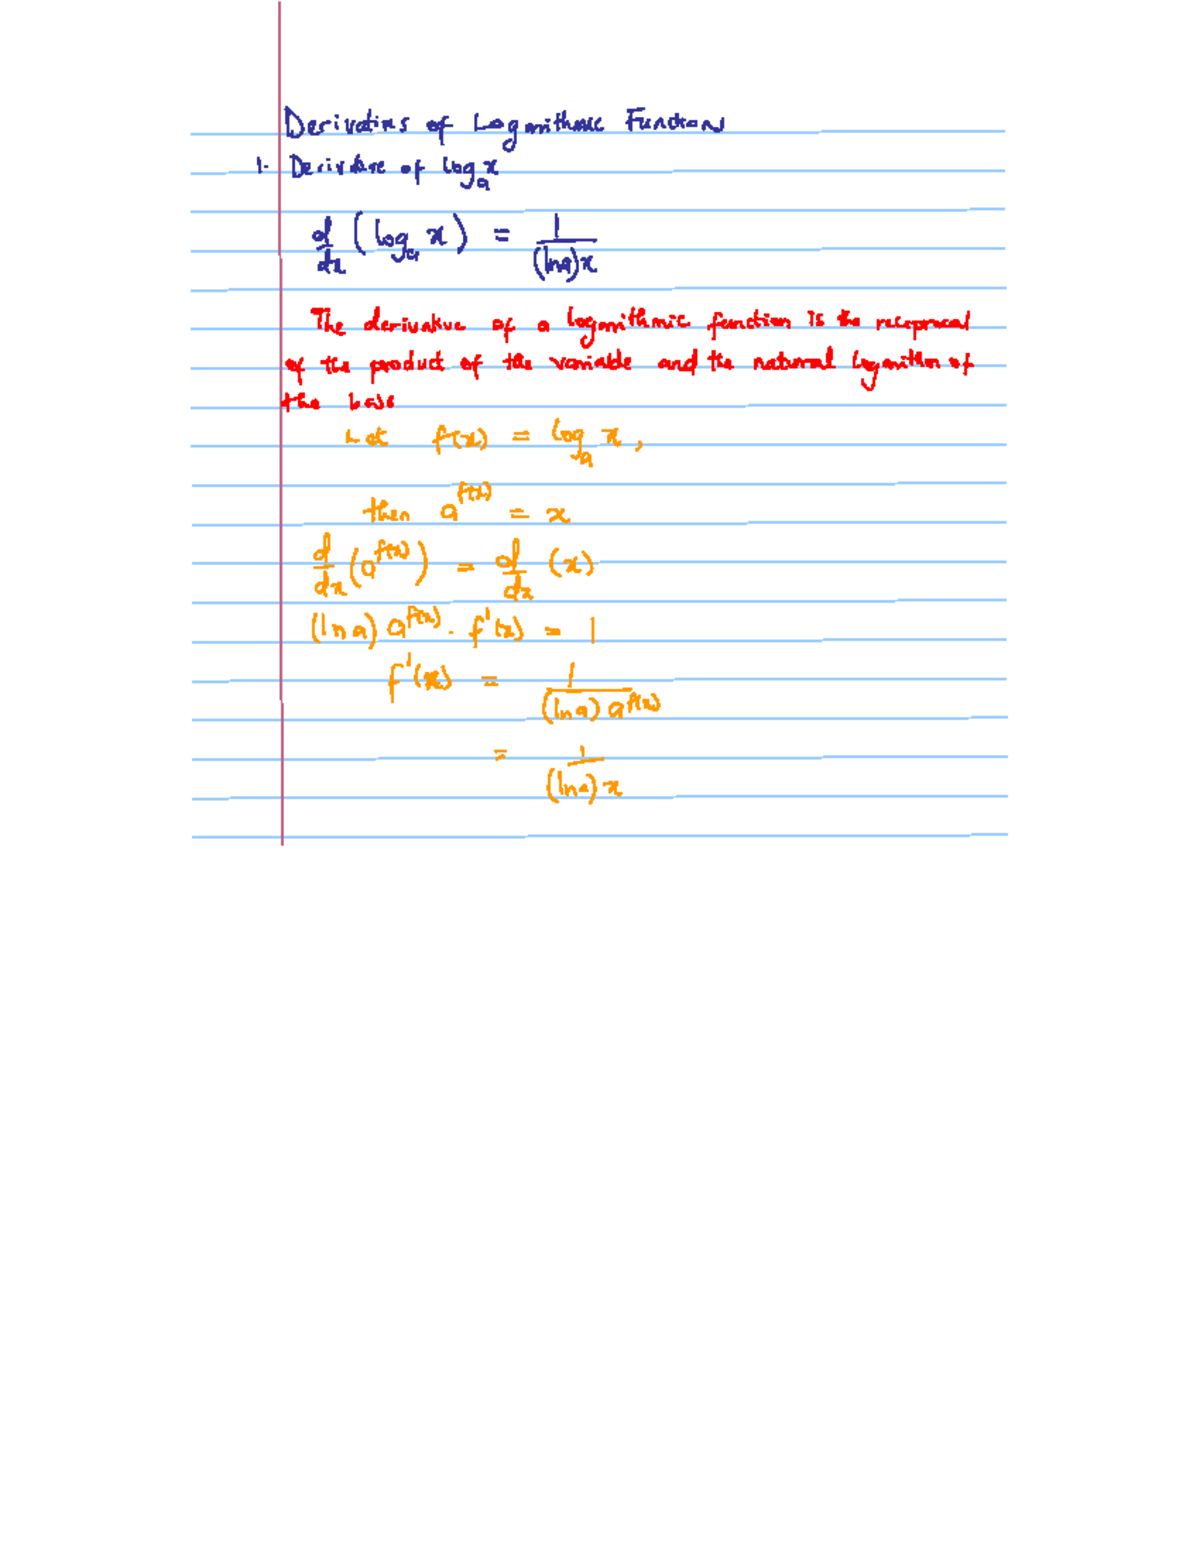 Derivatives of Logarithmic Functions
1. Derivative of log_a x
d/dx (log_a x) = 1/((ln a)x)
The derivative of a logarithmic function is the reciprocal
of the product of the variable and the natural logarithm of
the base
Let f(x) = log_a x,
then a^f(x) = x
d/dx (a^f(x)) = d/dx (x)
(ln a) a^f(x) · f'(x) = 1
f'(x) = 1/((ln a) a^f(x))
= 1/((ln a) x)